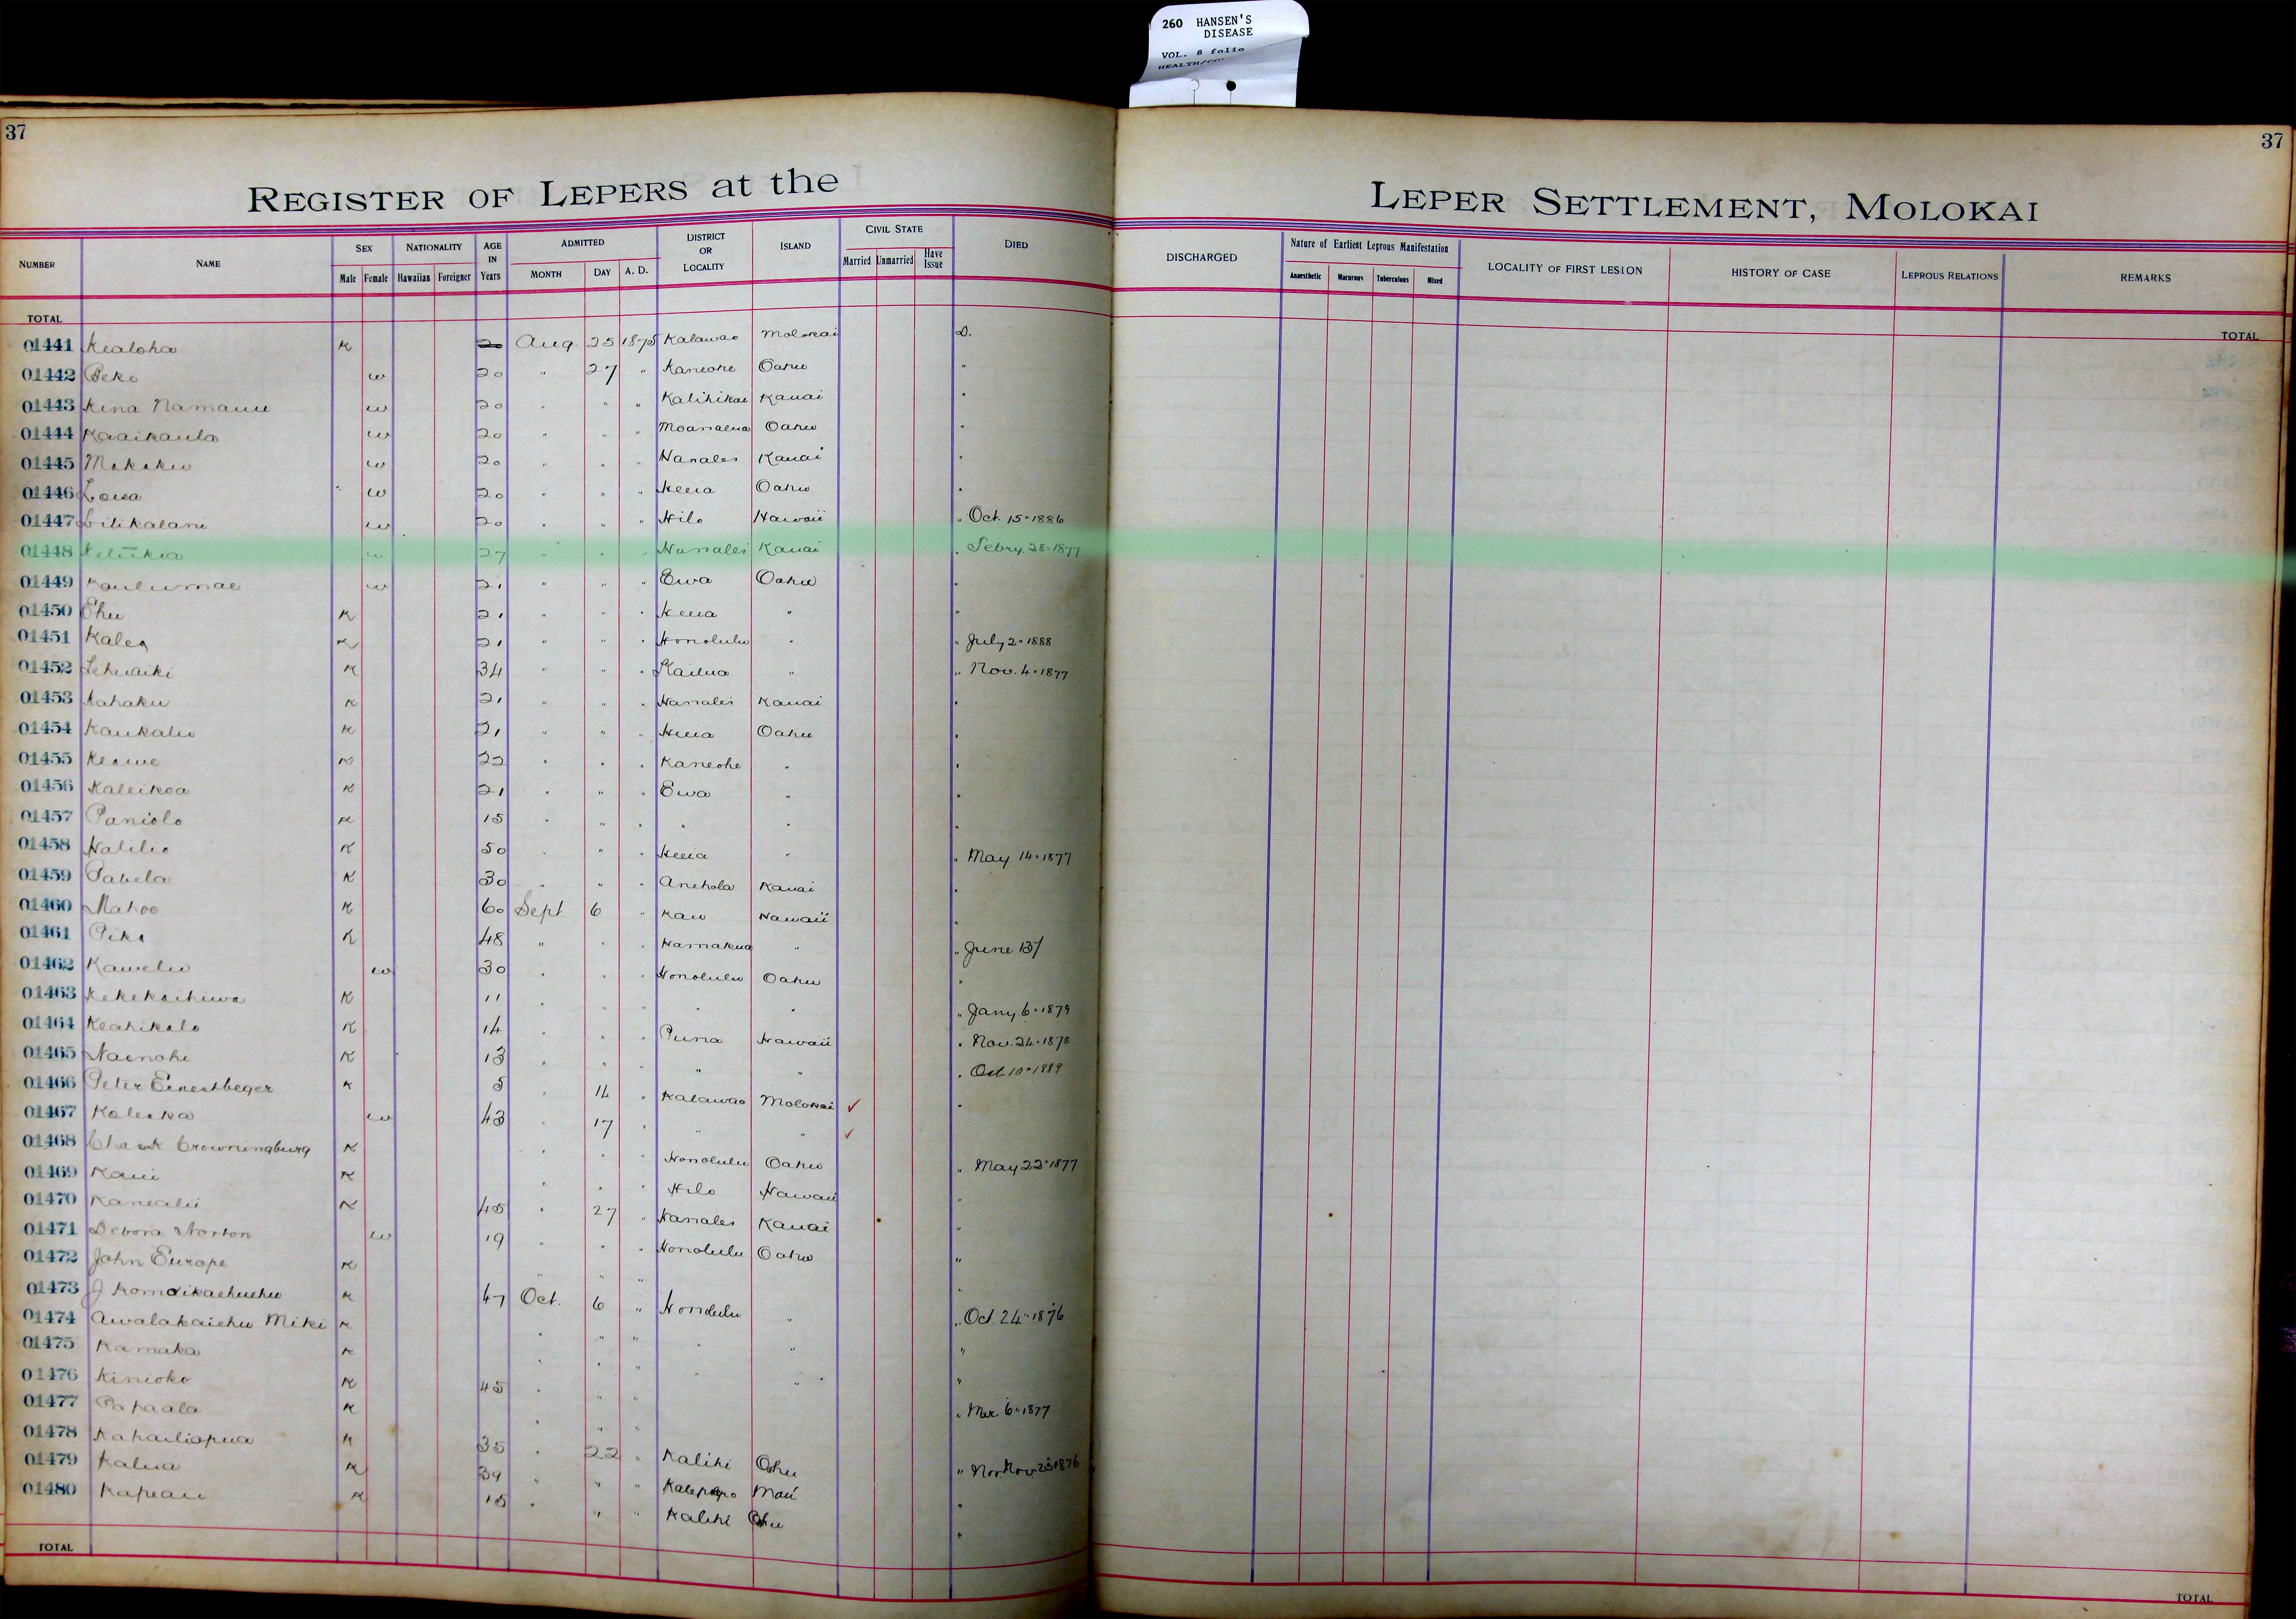 260 HANSEN'S
DISEASE
VOL. 8 folio
37
37
REGISTER OF LEPERS at the LEPER SETTLEMENT, MOLOKAI
NUMBER NAME SEX NATIONALITY AGE IN Years ADMITTED DISTRICT OR LOCALITY ISLAND CIVIL STATE DIED DISCHARGED Nature of Earliest Leprous Manifestation LOCALITY OF FIRST LESION HISTORY OF CASE LEPROUS RELATIONS REMARKS
Male Female Hawaiian Foreigner MONTH DAY A. D. Married Unmarried Have Issue Anaesthetic Macurous Tuberculous Mixed
TOTAL TOTAL
01441 Kealoha K 20 Aug. 25 1875 Kalawao Molokai D.
01442 Peke w 20 " 27 " Kaneohe Oahu "
01443 Kina Namauu w 20 " " " Kalihikai Kauai "
01444 Kaaikaula w 20 " " " Moanalua Oahu "
01445 w 20 " " " Hanalei Kauai "
01446 Loisa w 20 " " " Heeia Oahu "
01447 Lilikalani w 20 " " " Hilo Hawaii " Oct. 15 " 1886
01448 w 27 " " " Hanalei Kauai " Febry. 28 " 1877
01449 Kaulumae w 21 " " " Ewa Oahu "
01450 Ehu K 21 " " " Heeia " "
01451 Kalea K 21 " " " Honolulu " " July 2 " 1888
01452 Lehuaiki K 34 " " " Kailua " " Nov. 4 " 1877
01453 Kahaku K 21 " " " Hanalei Kauai "
01454 Kaukaliu K 21 " " " Heeia Oahu "
01455 Keawe K 22 " " " Kaneohe " "
01456 Kaleikoa K 21 " " " Ewa " "
01457 Paniolo K 15 " " " " " "
01458 Halilio K 50 " " " Heeia " " May 14 " 1877
01459 Pabela K 30 " " " Anehola Kauai "
01460 Mahoe K 60 Sept 6 " Kau Hawaii "
01461 Pika K 48 " " " Hamakua " " June 137
01462 Kawelu w 30 " " " Honolulu Oahu "
01463 Kekekaihiwa K 11 " " " " " " Jany. 6 " 1879
01464 Keahikolo K 14 " " " Puna Hawaii " Nov. 24 " 1878
01465 Nainohi K 13 " " " " " " Oct 10 " 1889
01466 Peter Ernestbeger K 5 " 14 " Kalawao Molokai ✓ "
01467 Koleka w 43 " 17 " " " ✓
01468 Crowningburg K " " " Honolulu Oahu " May 22 " 1877
01469 Kaui K " " " Hilo Hawaii "
01470 Kanealii K 45 " 27 " Hanalei Kauai "
01471 Debora Norton w 19 " " " Honolulu Oahu "
01472 John Europe K " " " "
01473 J Komoikaehuehu K 47 Oct. 6 " Honolulu " " Oct. 24 " 1876
01474 Awalakaiehu Miki K " " " " " "
01475 Kamaka K " " " " " "
01476 Kinioko K 45 " " " " Mar. 6 " 1877
01477 Papaala K " " "
01478 Kahailiopua K 35 " 22 " Kalihi Oahu " Nov. 25 1876
01479 Kalua K 39 " " " Kalepolepo Maui "
01480 Kapeau K 15 " " " Kalihi Oahu "
TOTAL TOTAL